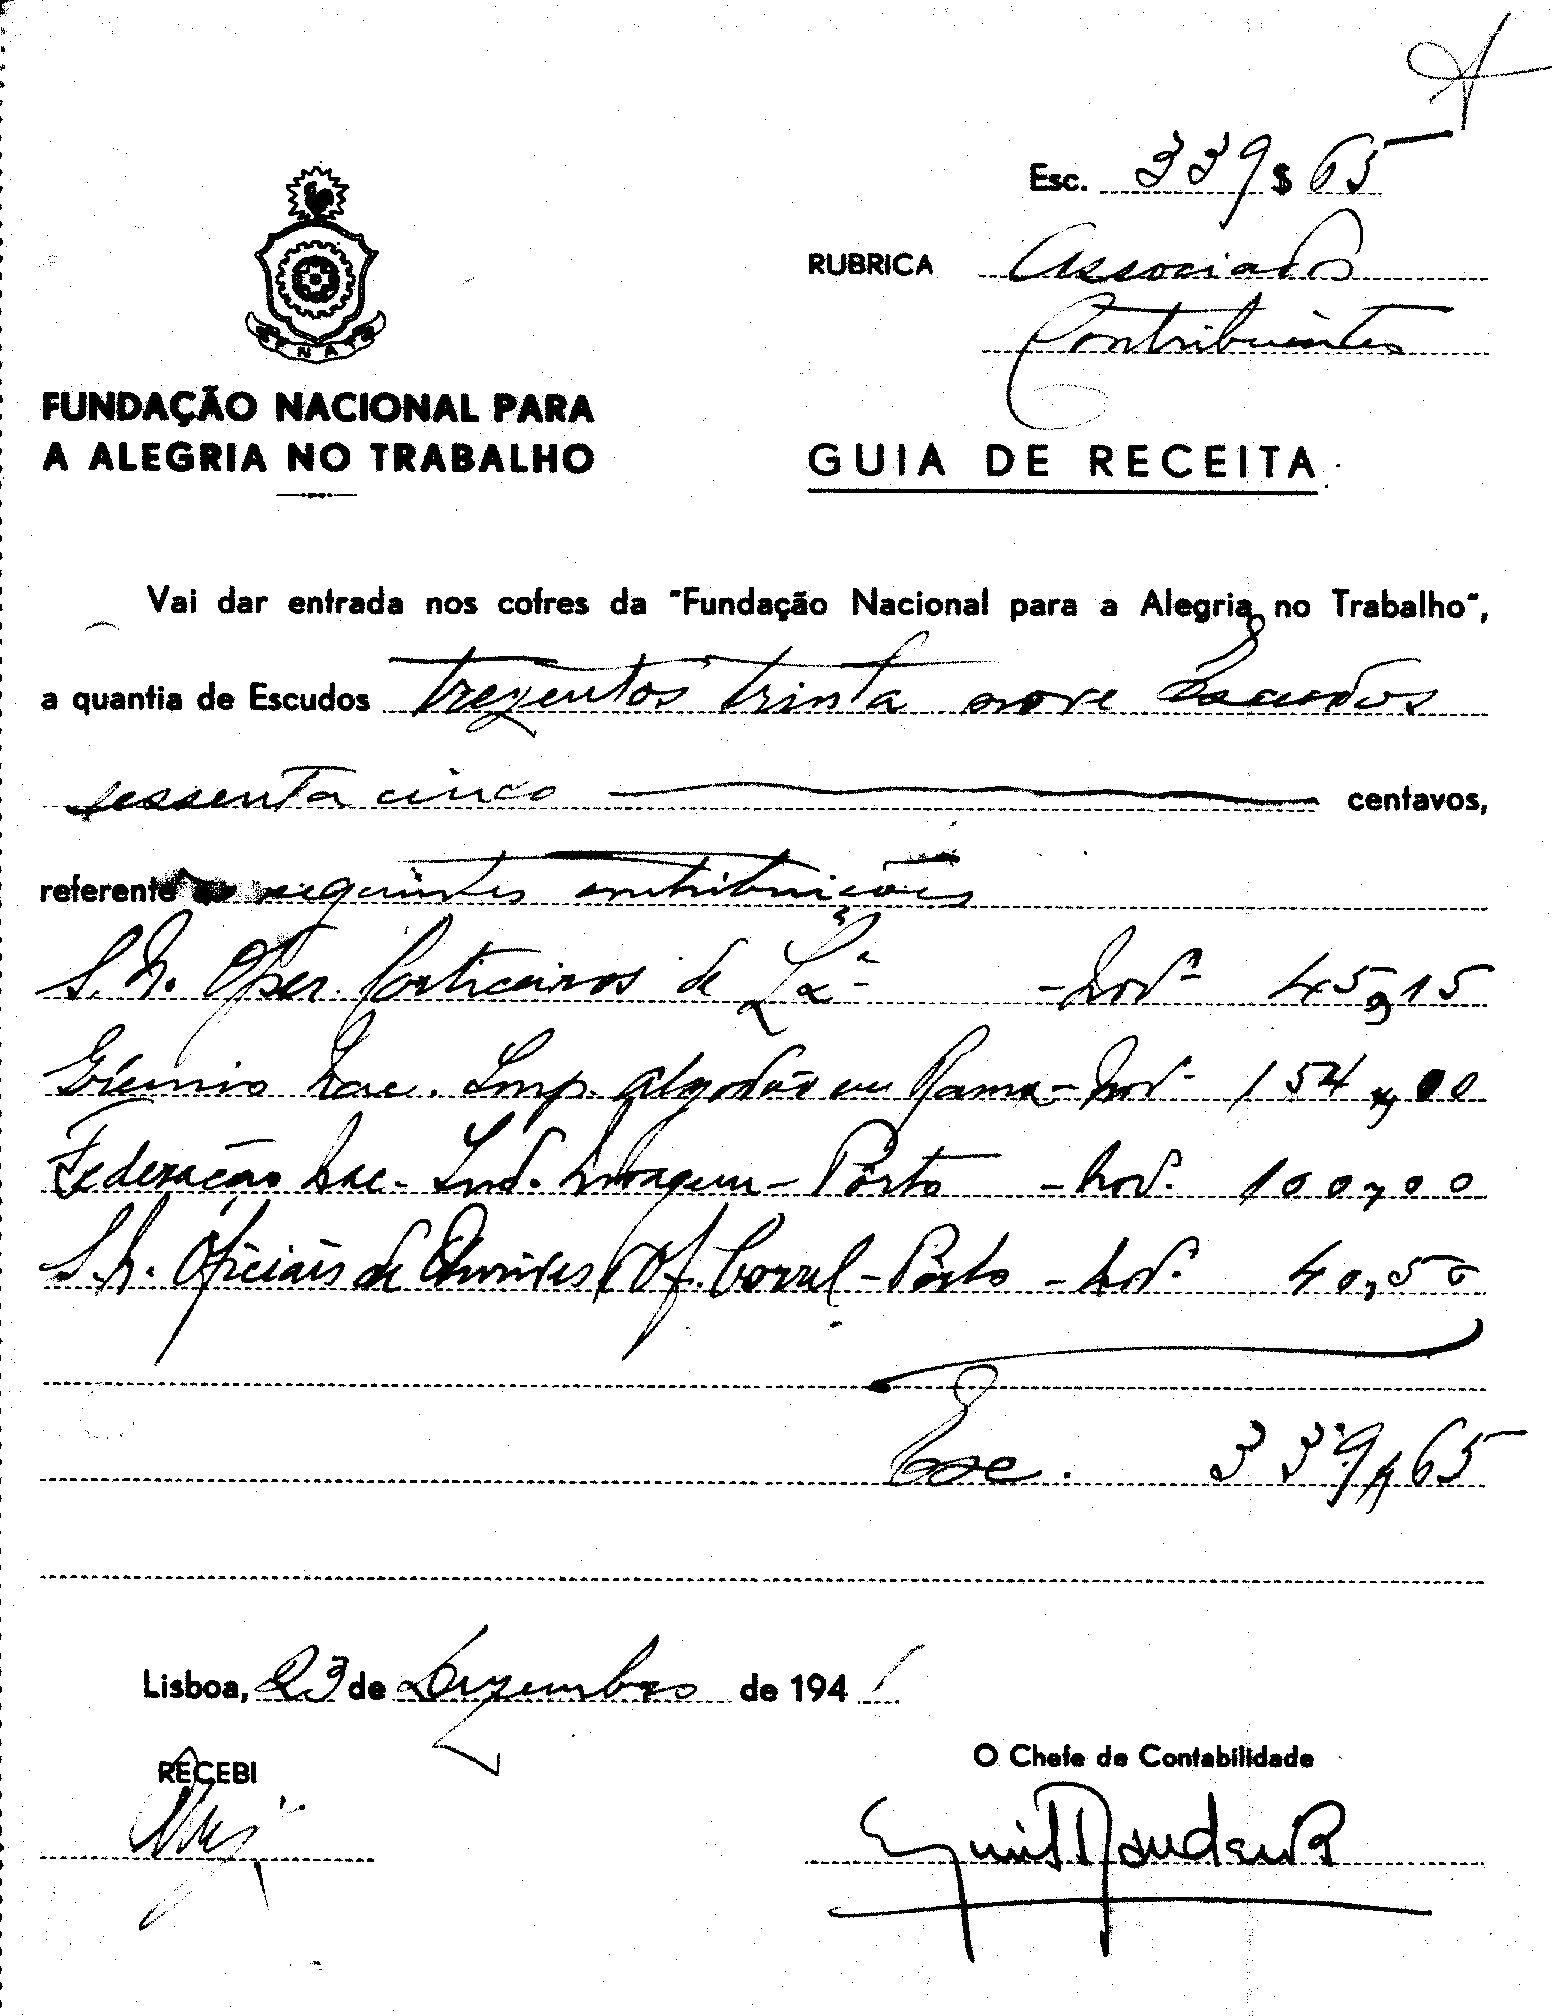 Esc. 339 $ 65
RUBRICA Associados
Contribuintes
FNAT
FUNDAÇÃO NACIONAL PARA
A ALEGRIA NO TRABALHO
GUIA DE RECEITA
Vai dar entrada nos cofres da "Fundação Nacional para a Alegria no Trabalho",
a quantia de Escudos trezentos trinta nove Escudos
sessenta cinco centavos,
referente seguintes contribuições
S. N. Oper. Corticeiros de - Nov.º 45,15
Grémio Nac. Imp. Algodão em Rama - Nov.º 154,00
Federação Nac. Ind. Moagem - Pôrto - Nov.º 100,00
S. N. Oficiais de Ourives Of. Correl. - Pôrto - Nov.º 40,50
Esc. 339$65
Lisboa, 23 de Dezembro de 1941
RECEBI
O Chefe de Contabilidade